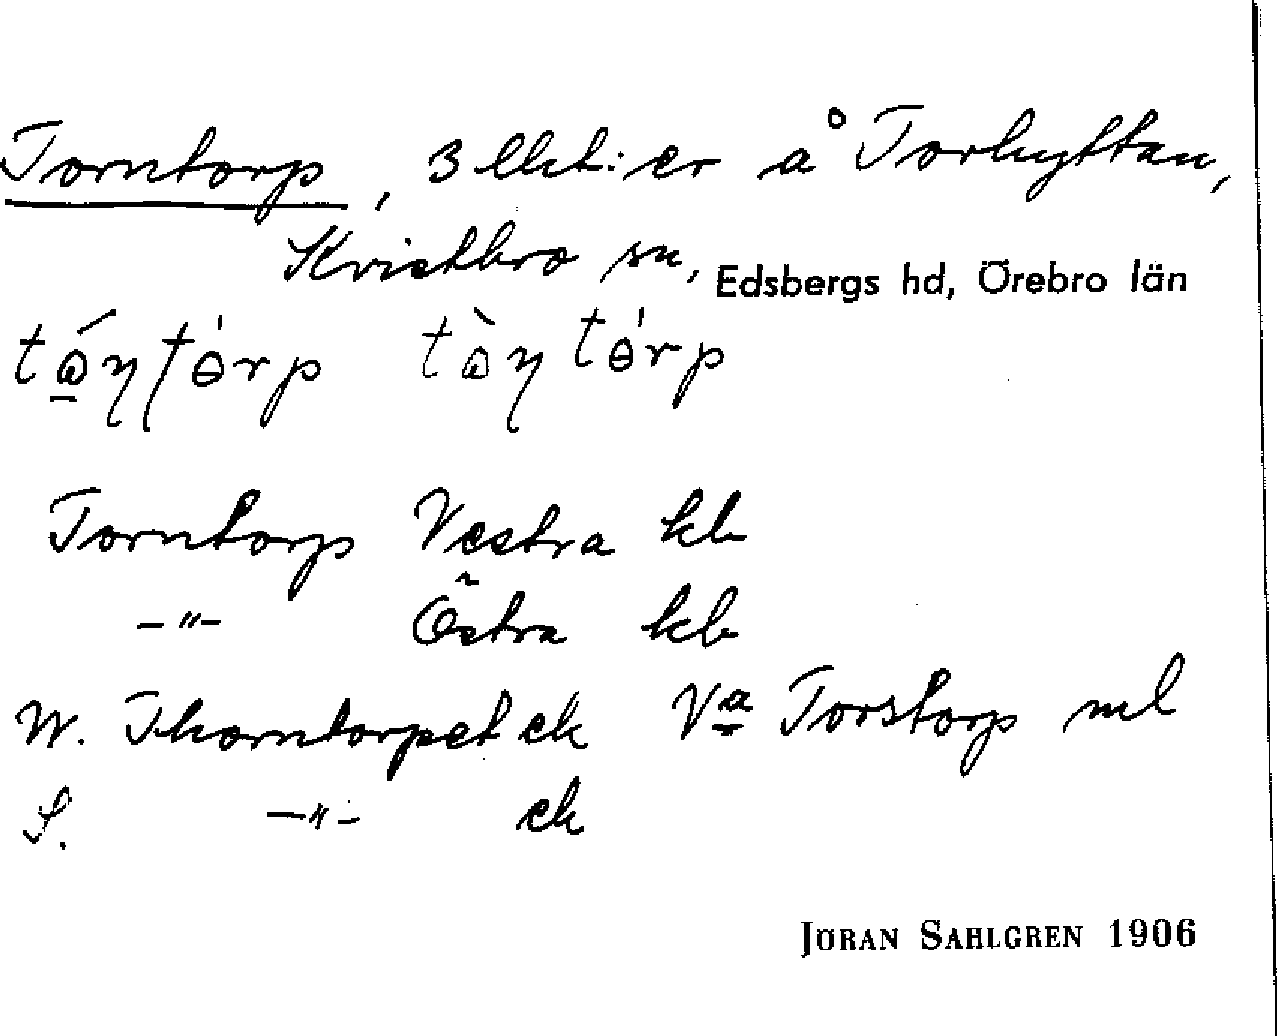 Torntorp, 3 lht:er å Torhyttan,
Kvistbro sn, Edsbergs hd, Örebro län
Torntorp Vestra kb
—"— Östra kb
W. Thorntorpet ek Va Torstorp ml
S. —"— ek
JÖRAN SAHLGREN 1906